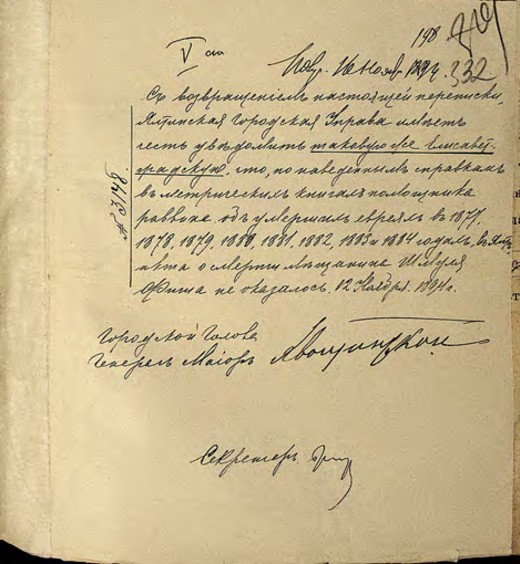 198
V ст
Пол. 16 Ноябр 1894. 332
Съ возвращеніемъ настоящей переписки,
Ялтинская Городская Управа имѣетъ
честь увѣдомить таковую же Елисавет-
градскую, что, по наведеннымъ справкамъ
въ метрическихъ книгахъ помощника
раввина объ умершихъ евреяхъ въ 1877,
1878, 1879, 1880, 1881, 1882, 1883 и 1884 годахъ, въ Ялтѣ
акта о смерти мѣщанина Шмуля
Фиша не оказалось. 12 Ноября 1894 г.
№ 3148
Городской Голова
Генералъ Маіоръ
Секретарь